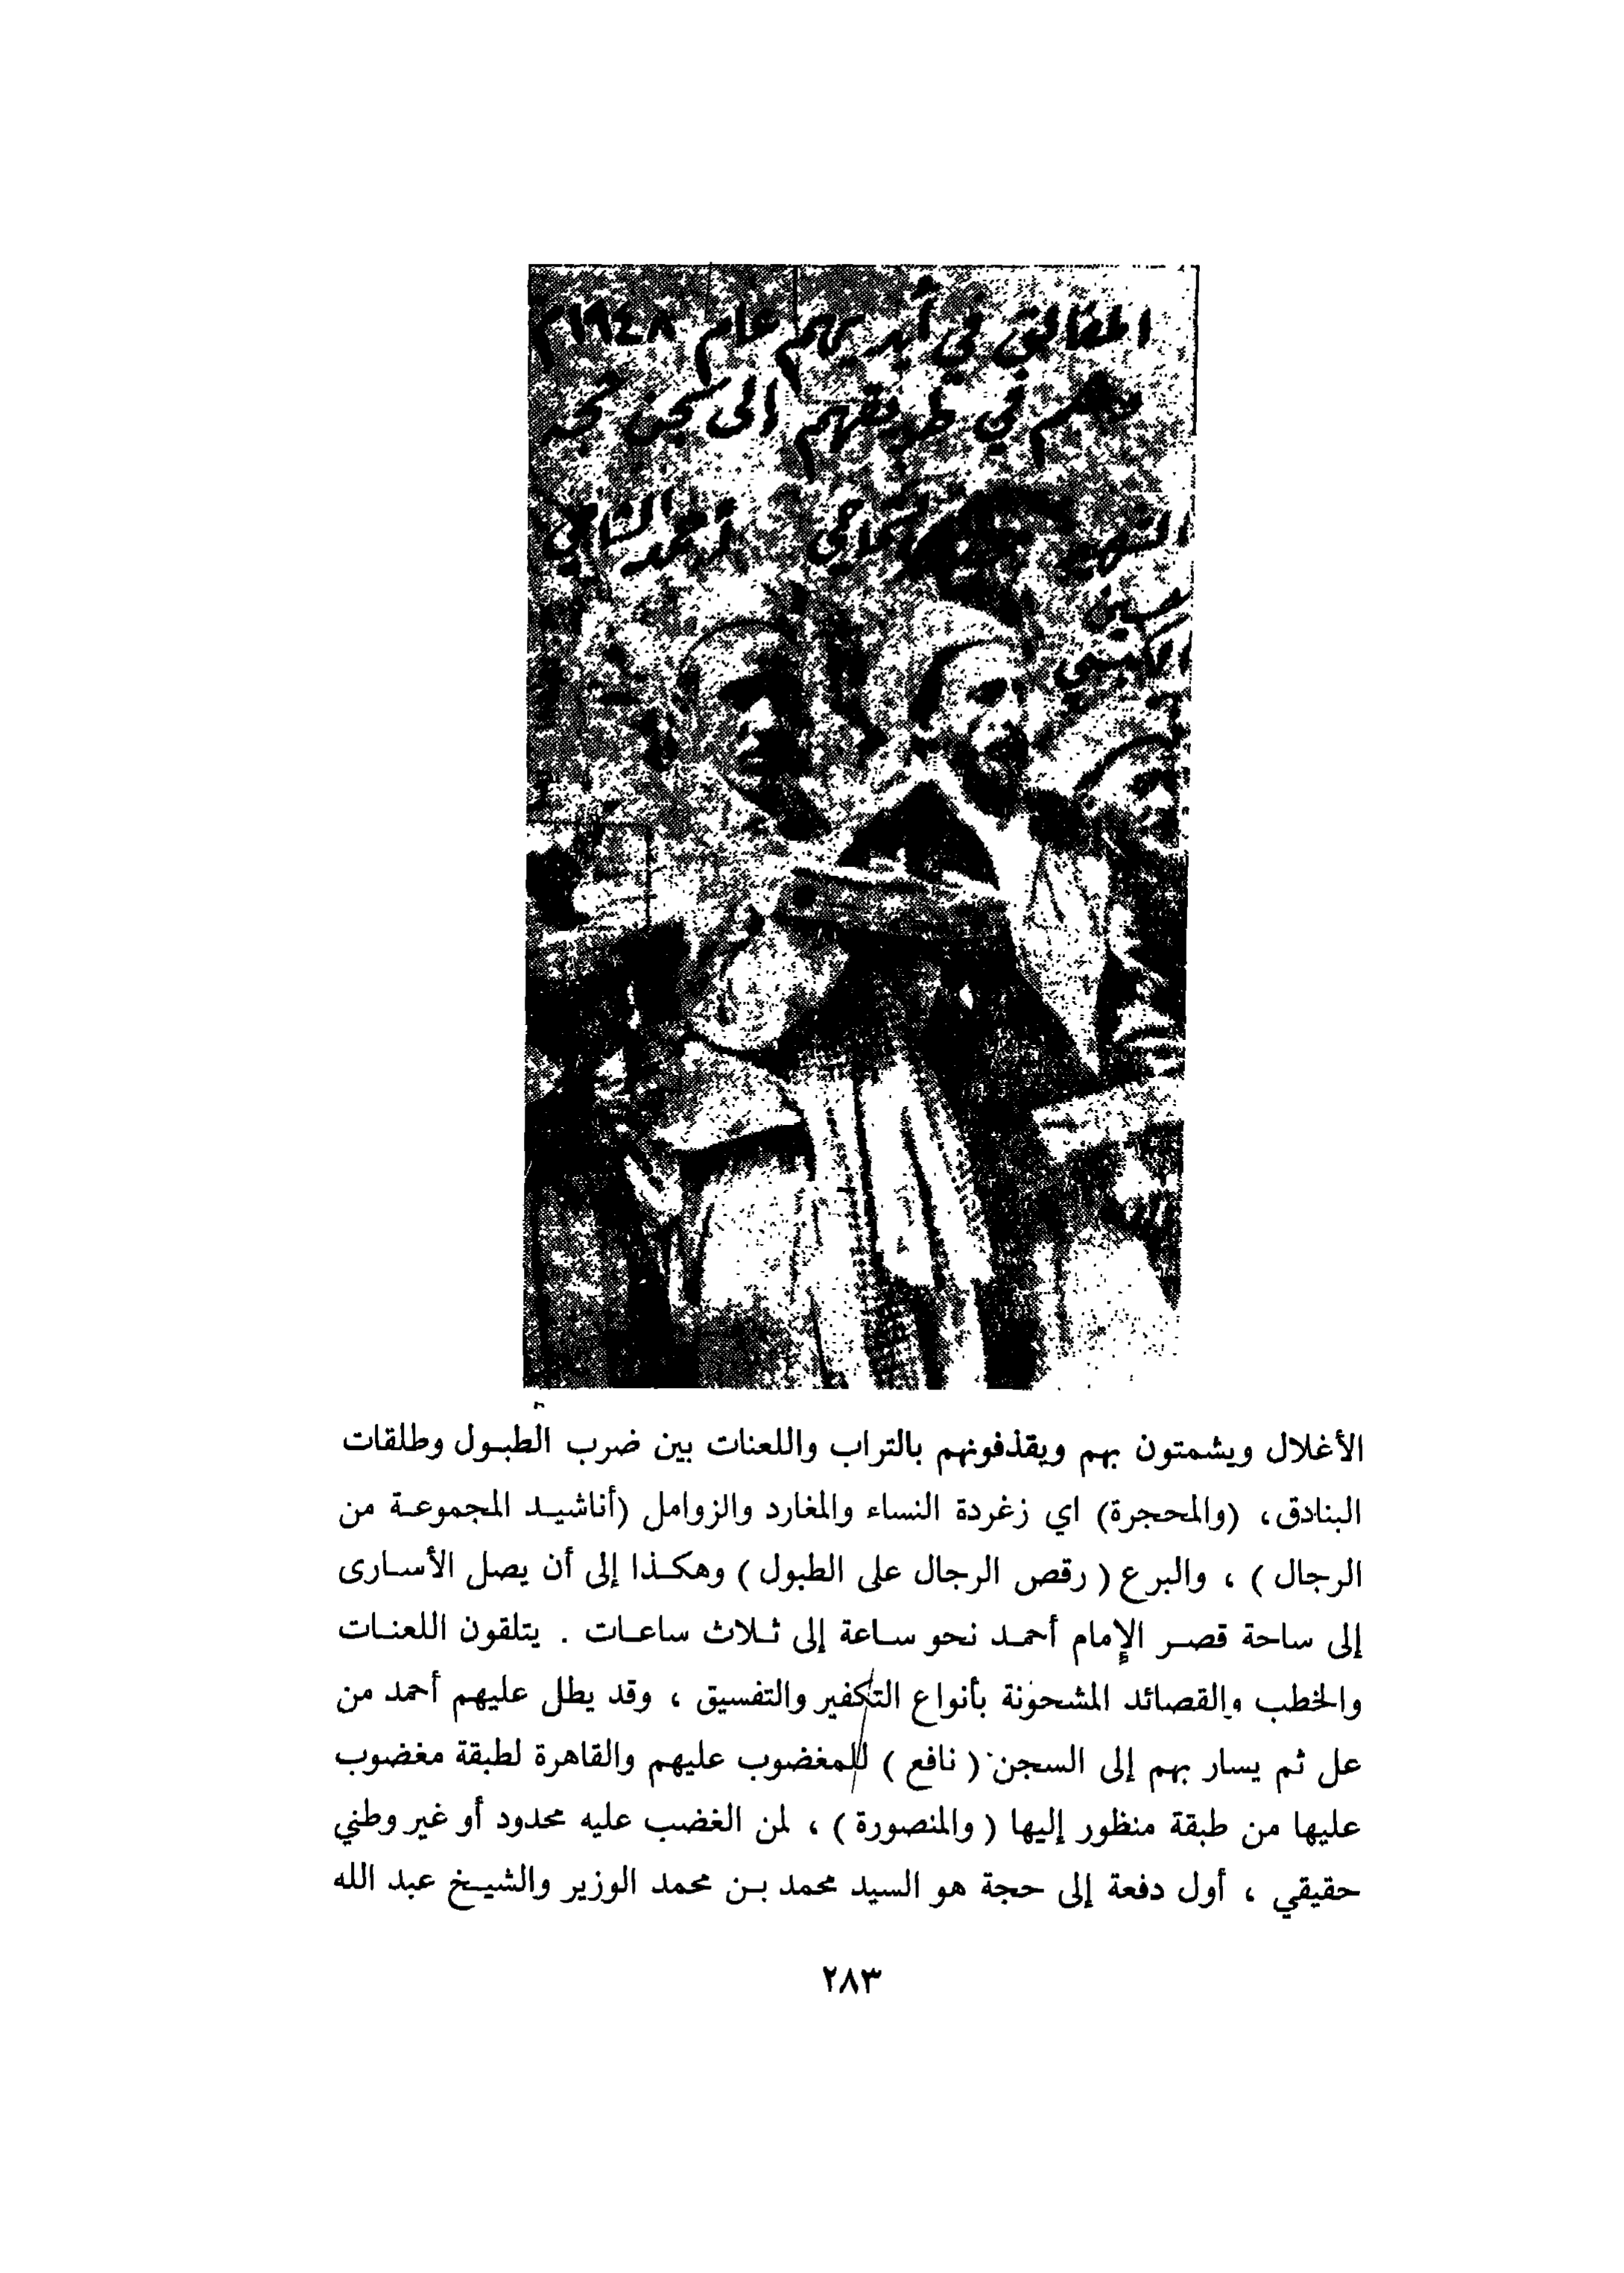 المغالق في أيديهم عام ١٩٤٨م
وهم في طريقهم إلى سجن حجه
الشهيد الشماحي أحمد الشامي
حسين
الكبسي
الأغلال ويشمتون بهم ويقذفونهم بالتراب واللعنات بين ضرب الطبـول وطلقات
البنادق، (والمحجرة) اي زغردة النساء والمغارد والزوامل (أناشيـد المجموعـة من
الرجال) ، والبرع (رقص الرجال على الطبول) وهكـذا إلى أن يصل الأسـارى
إلى ساحة قصـر الإمام أحمـد نحو سـاعة إلى ثـلاث ساعـات . يتلقون اللعنـات
والخطب والقصائد المشحونة بأنواع التكفير والتفسيق ، وقد يطل عليهم أحمد من
عل ثم يسار بهم إلى السجن (نافع) للمغضوب عليهم والقاهرة لطبقة مغضوب
عليها من طبقة منظور إليها (والمنصورة) ، لمن الغضب عليه محدود أو غير وطني
حقيقي ، أول دفعة إلى حجة هو السيد محمد بـن محمد الوزير والشيـخ عبد الله
٢٨٣